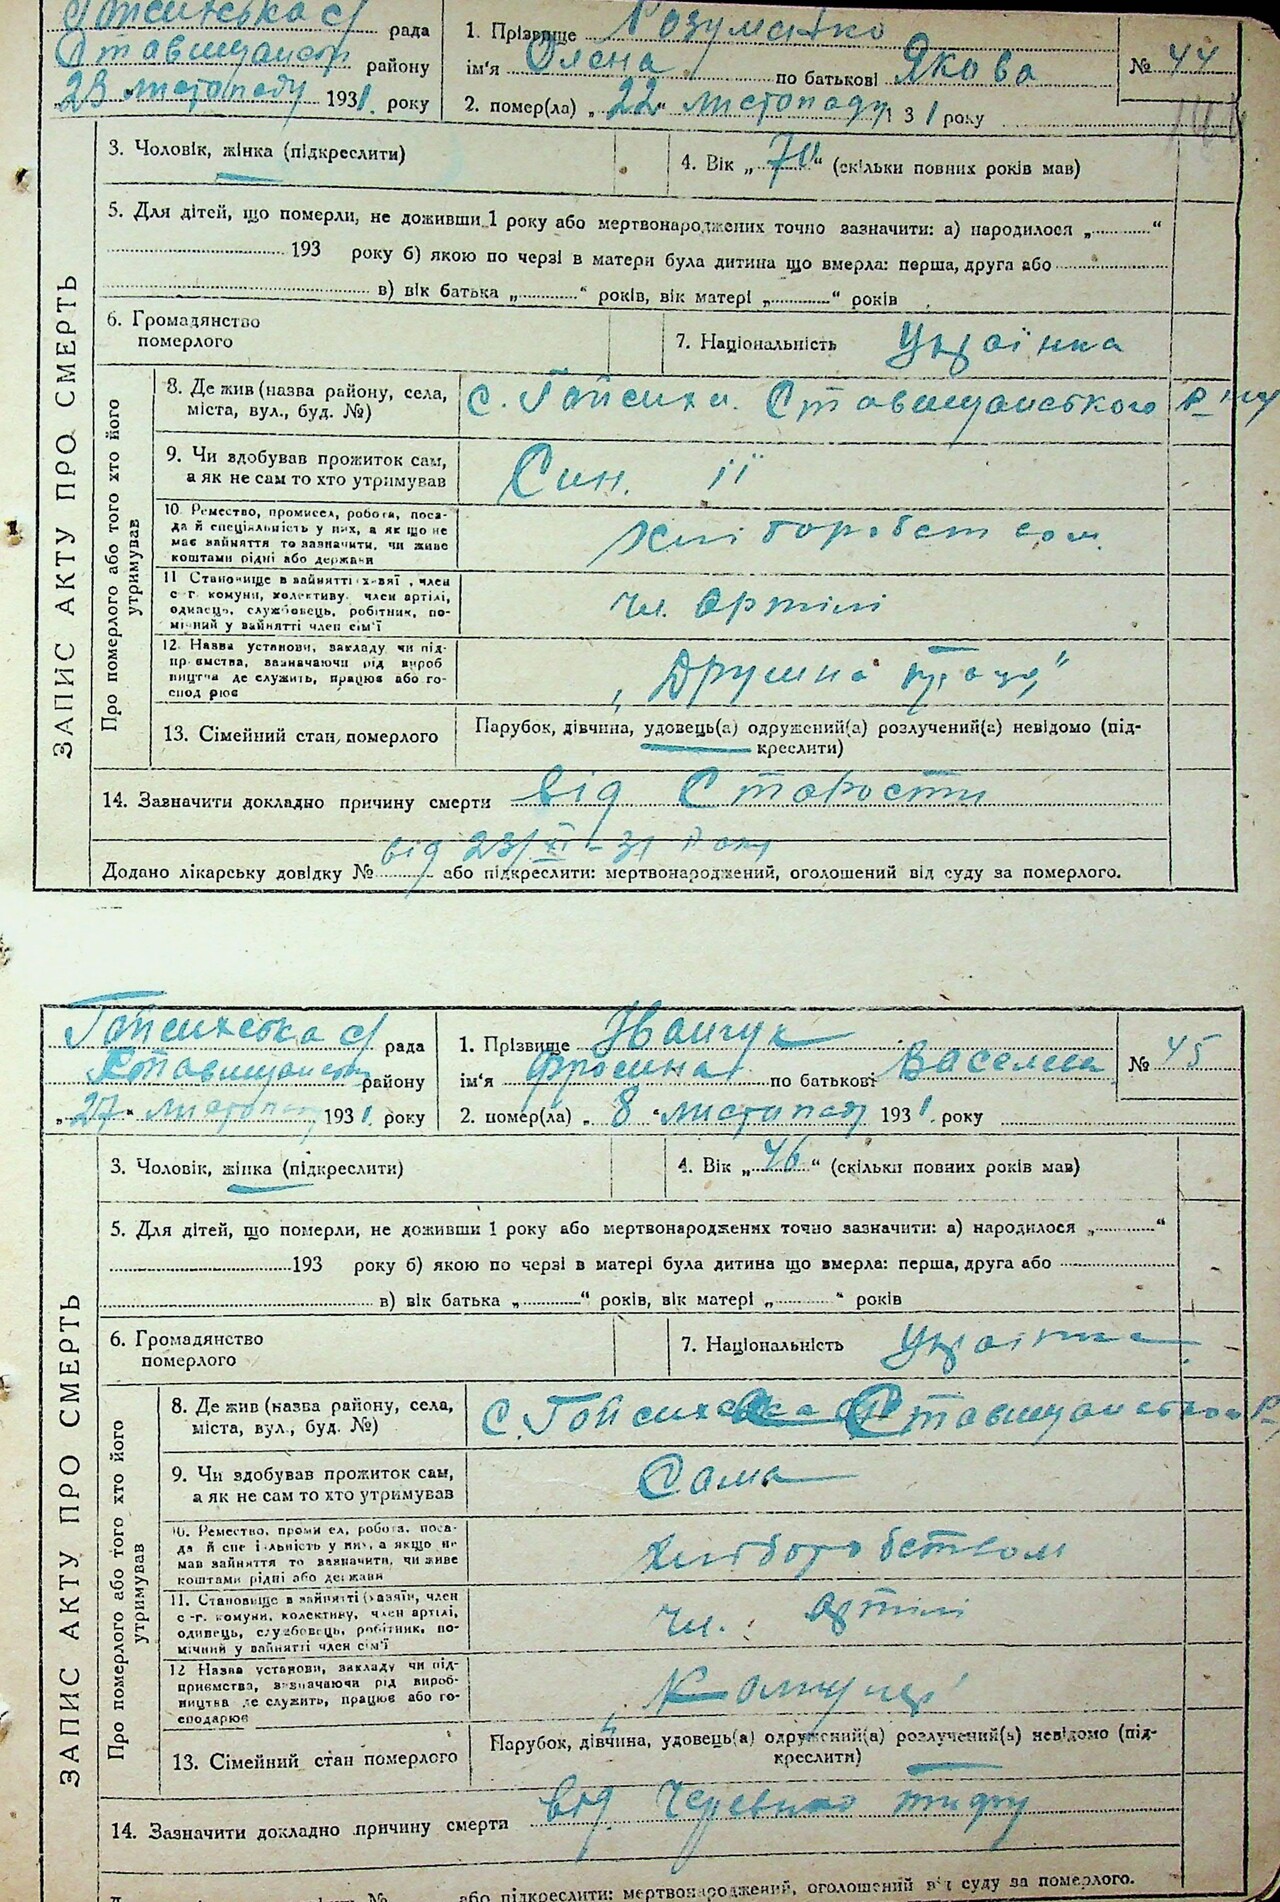 рада
Ставищанськ району
„23 листопаду 1931. року
1. Прізвище Розуменко
ім'я Олена по батькові Якова
2. помер(ла) „22" листопаду 31 року
№ 44
ЗАПИС АКТУ ПРО СМЕРТЬ
3. Чоловік, жінка (підкреслити)
4. Вік „70" (скільки повних років мав)
5. Для дітей, що померли, не доживши 1 року або мертвонароджених точно зазначити: а) народилося „............"
193 року б) якою по черзі в матери була дитина що вмерла: перша, друга або
в) вік батька „............" років, вік матері „............" років
6. Громадянство
померлого
7. Національність Українка
Про померлого або того хто його
утримував
8. Де жив (назва району, села,
міста, вул., буд. №)
с. Гойсихи. Ставищанського р-ну
9. Чи здобував прожиток сам,
а як не сам то хто утримував
Син її
10. Ремество, промисел, робота, поса-
да й спеціяльність у них, а як що не
має зайняття то зазначити, чи живе
коштами рідні або держави
хліборобством.
11 Становище в зайнятті , член
с-г. комуни, колективу, член артілі,
одинець, службовець, робітник, по-
мічний у зайнятті член сім'ї
чл. артілі
12. Назва установи, закладу чи під-
приємства, зазначаючи рід вироб
ництва де служить, працює або го-
сподарює
„Дружна праця"
13. Сімейний стан померлого
Парубок, дівчина, удовець(а) одружений(а) розлучений(а) невідомо (під-
креслити)
14. Зазначити докладно причину смерти від Старости
від 23/XI-31 року
Додано лікарську довідку № або підкреслити: мертвонароджений, оголошений від суду за померлого.
Гойсихська с/ рада
Ставищанськ району
„27" листопаду 1931. року
1. Прізвище Іванчук
ім'я Фросина по батькові Василева
2. помер(ла) „8" листопаду 1931. року
№ 45
ЗАПИС АКТУ ПРО СМЕРТЬ
3. Чоловік, жінка (підкреслити)
4. Вік „46" (скільки повних років мав)
5. Для дітей, що померли, не доживши 1 року або мертвонароджених точно зазначити: а) народилося „............"
193 року б) якою по черзі в матері була дитина що вмерла: перша, друга або
в) вік батька „............" років, вік матері „............" років
6. Громадянство
померлого
7. Національність Українка
Про померлого або того хто його
утримував
8. Де жив (назва району, села,
міста, вул., буд. №)
с. Ставищанського р-
9. Чи здобував прожиток сам,
а як не сам то хто утримував
Сама
10. Ремество, проми ел, робота, поса-
да й спеціяльність у них, а якщо не
мав зайняття то зазначити, чи живе
коштами рідні або держави
хліборобством
11. Становище в зайнятті (хазяїн, член
с-г. комуни, колективу, член артілі,
одинець, службовець, робітник, по-
мічний у зайнятті член сім'ї
чл. артілі
12 Назва установи, закладу чи під-
приємства, зазначаючи рід вироб-
ництва де служить, працює або го-
сподарює
13. Сімейний стан померлого
Парубок, дівчина, удовець(а) одружений(а) розлучений(а) невідомо (під-
креслити)
14. Зазначити докладно причину смерти від. Черевного тифу
або підкреслити: мертвонароджений, оголошений від суду за померлого.